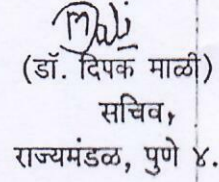 (डॉ. दिपक माळी)
सचिव,
राज्यमंडळ, पुणे ४.